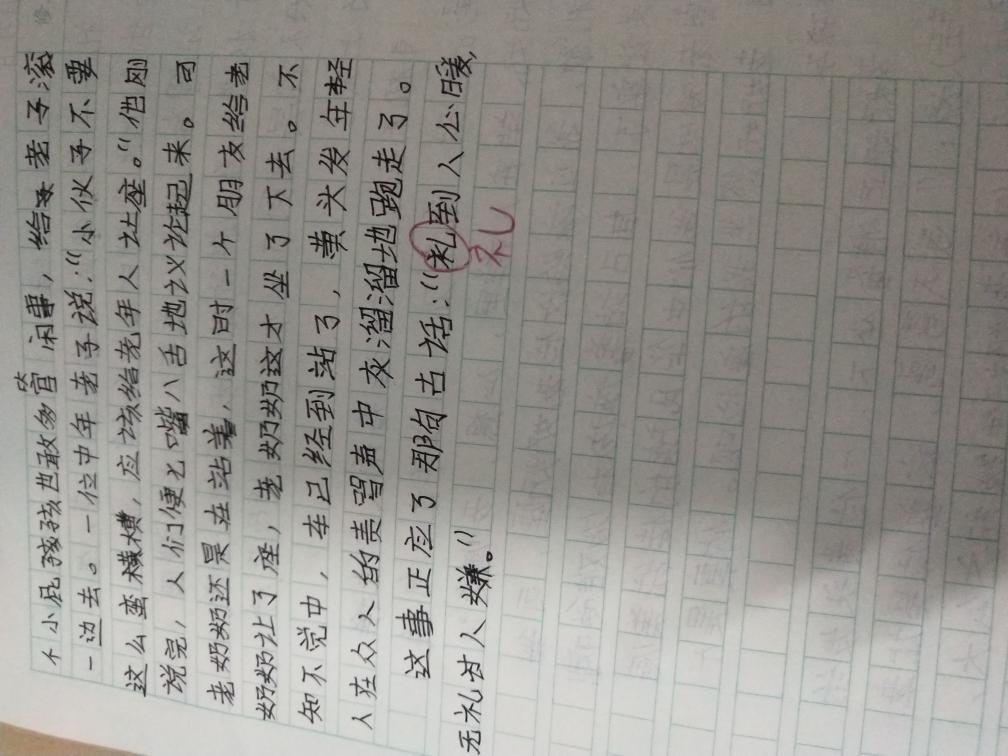 个小屁孩孩也敢多管闲事，给老子滚
一边去。一位中年老子说：“小伙子不要
这么蛮横，应该给老年人让座。”他刚
说完，人们便七嘴八舌地议论起来。可
老奶奶还是在站着，这时一个朋友给老
奶奶让了座，老奶奶这才坐了下去。不
知不觉中，车已经到站了，黄头发年轻
人在众人的责骂声中灰溜溜地跑走了。
这事正应了那句古话：“礼到人心暖，
无礼讨人嫌。”
礼